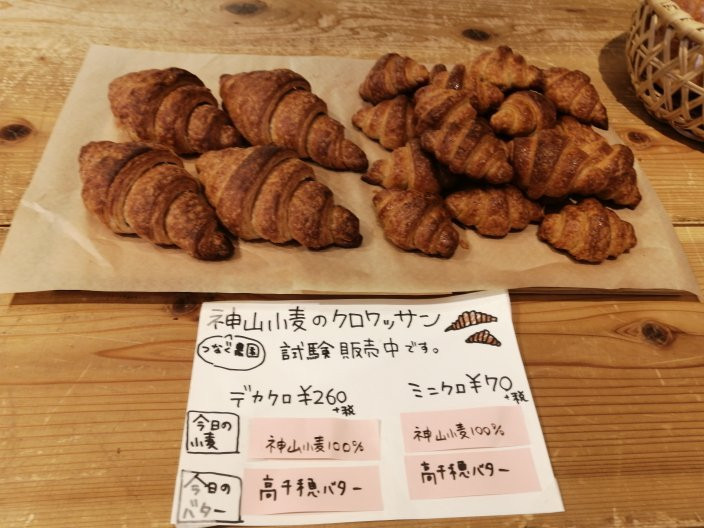 神山小麦のクロワッサン
つなぐ農園
試験販売中です。
デカクロ¥260
+税
ミニクロ¥70
+税
今日の
小麦
神山小麦100%
神山小麦100%
今日の
バター
高千穂バター
高千穂バター